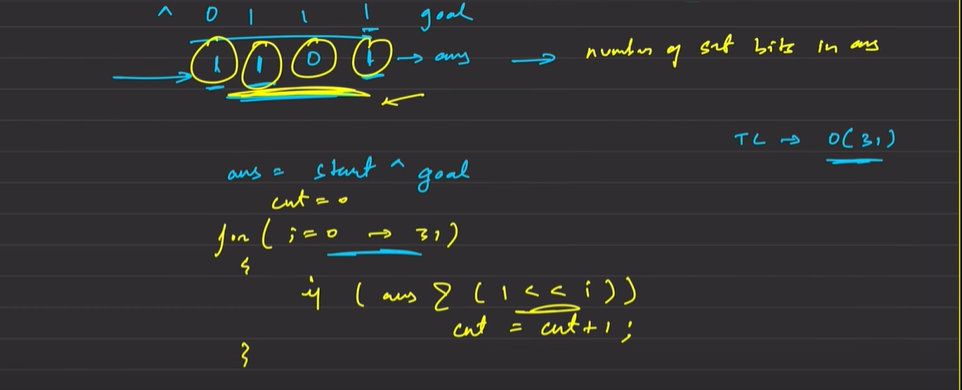 ^ 0 1 1 1 goal
1 1 0 1 → ans → number of set bits in ans
TC → O(31)
ans = start ^ goal
cnt = 0
for ( i = 0 → 31)
{
if ( ans & ( 1 << i ))
cnt = cnt + 1 ;
}